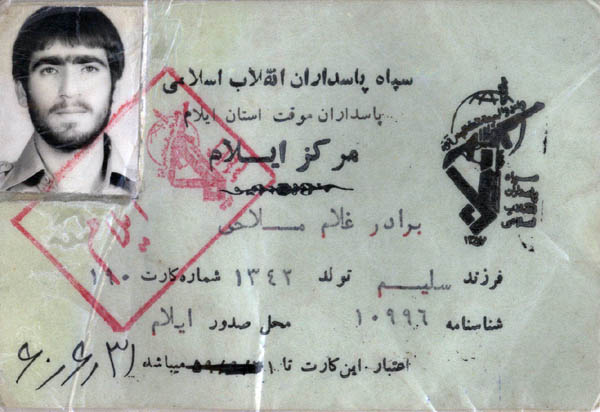 سپاه پاسداران انقلاب اسلامی
پاسداران موقت استان ایلام
مرکز ایلام
برادر غلام ملاحی
فرزند سلیم تولد ۱۳۴۲ شماره کارت ۱۹۰
شناسنامه ۱۰۹۹۶ محل صدور ایلام
اعتبار این کارت تا میباشد ۶۰/۶/۳۱